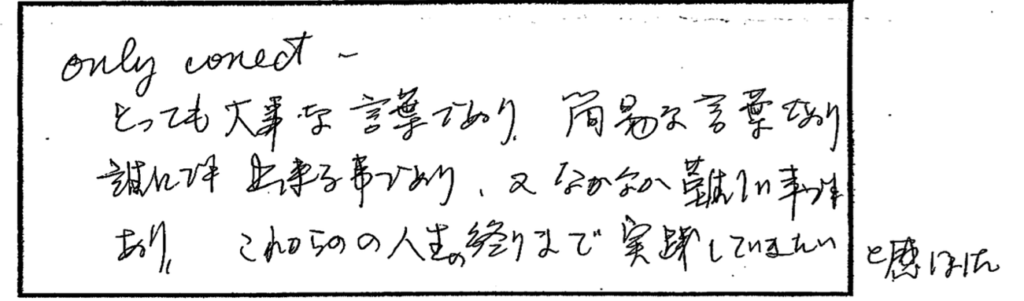 only conect ～
とっても大事な言葉であり、簡易な言葉であり
誰にでも出来る事であり、又なかなか難しい事でも
あり、これからのの人生の終りまで実践していきたい
と感じました